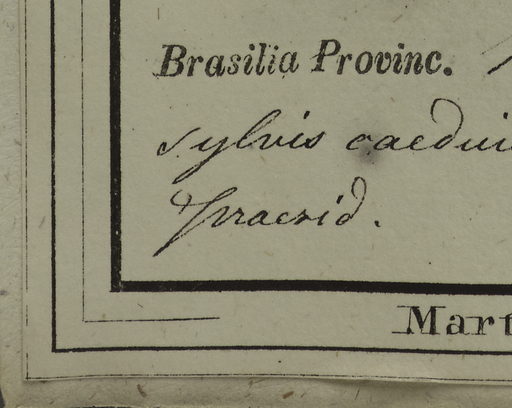 Brasilia Provinc.
sylvis caedui
Praesid.
Mart